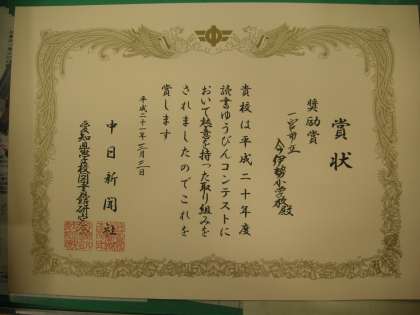 賞状
奨励賞
一宮市立
今伊勢小学校殿
貴校は平成二十年度
読書ゆうびんコンテストに
おいて熱意を持った取り組みを
されましたのでこれを
賞します
平成二十一年三月二日
中日新聞社
愛知県学校図書館研究会